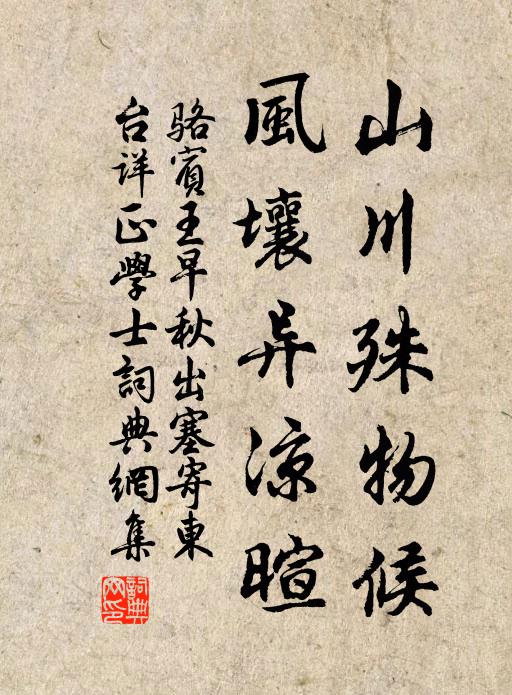 山川殊物候
風壤异凉暄
骆賓王早秋出塞寄東
台详正學士詞典網集
詞典網印